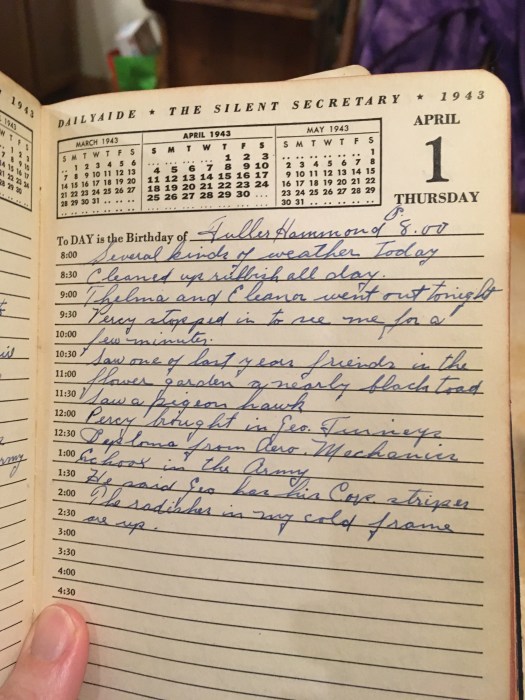 DAILYAIDE ★ THE SILENT SECRETARY ★ 1943
MARCH 1943
S M T W T F S
.. 1 2 3 4 5 6
7 8 9 10 11 12 13
14 15 16 17 18 19 20
21 22 23 24 25 26 27
28 29 30 31 .. .. ..
APRIL 1943
S M T W T F S
.. .. .. .. 1 2 3
4 5 6 7 8 9 10
11 12 13 14 15 16 17
18 19 20 21 22 23 24
25 26 27 28 29 30 ..
MAY 1943
S M T W T F S
.. .. .. .. .. .. 1
2 3 4 5 6 7 8
9 10 11 12 13 14 15
16 17 18 19 20 21 22
23 24 25 26 27 28 29
30 31 .. .. .. .. ..
APRIL
1
THURSDAY
To DAY is the Birthday of Fuller Hammond 8.00
8:00 Several kinds of weather Today
8:30 Cleaned up rubbish all day.
9:00 Thelma and Eleanor went out tonight
9:30 Percy stopped in to see me for a
10:00 few minutes.
10:30 Saw one of last years friends in the
11:00 flower garden a nearly black toad
11:30 Saw a pigeon hawk
12:00 Percy brought in Geo. Turneys
12:30 Deploma from Aero. Mechanics
1:00 School in the Army
1:30 He said Geo has his Corp stripes
2:00 The radishes in my cold frame
2:30 are up.
3:00
3:30
4:00
4:30